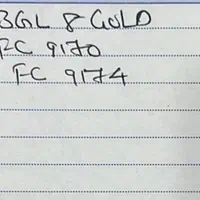 BGL 8 GOLD
FC 9170
FC 9174